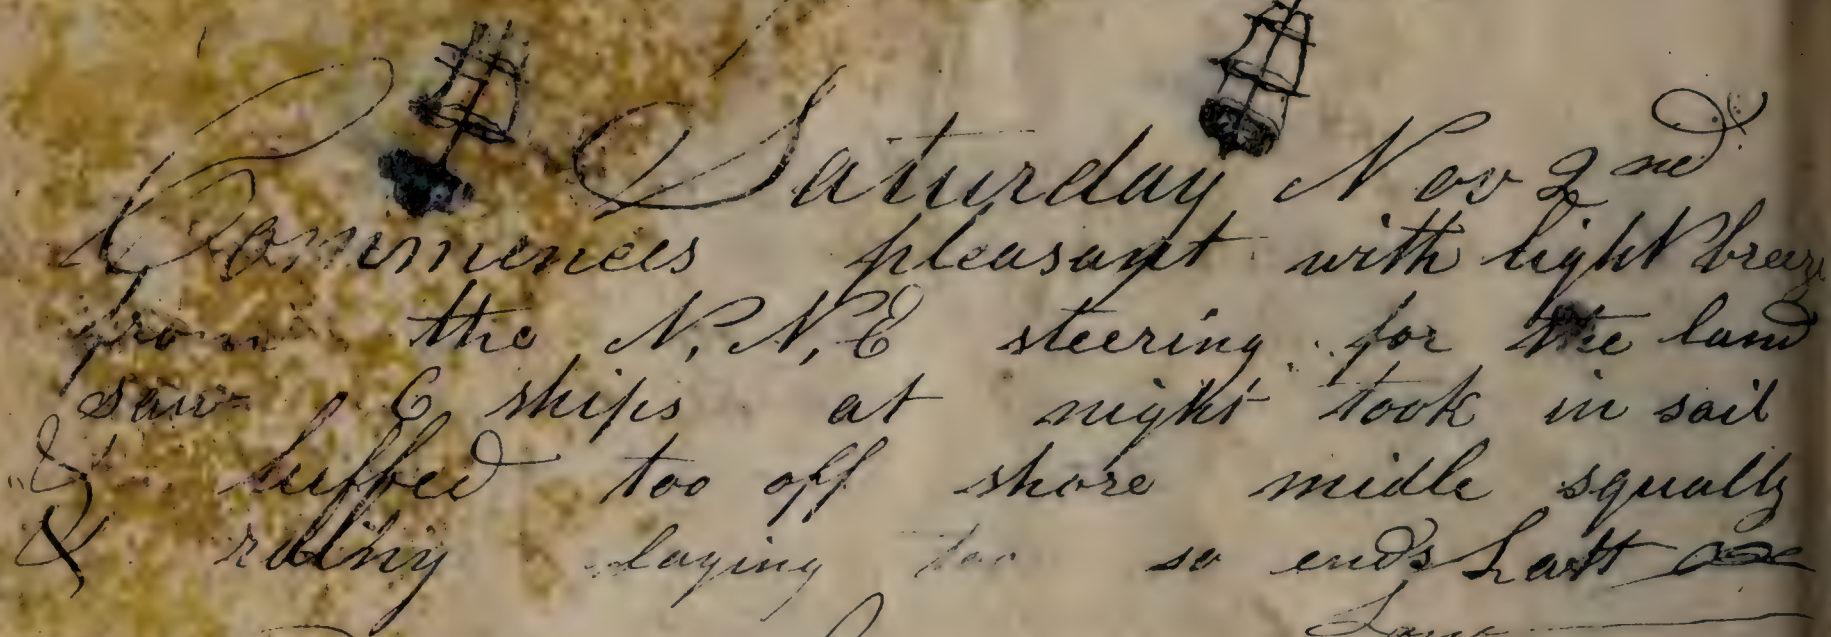 Saturday Nov 2nd
Commences pleasant with light breeze
from the N, N, E steering for the land
saw 6 ships at night took in sail
& luffed too off shore midle squally
& rainy laying too so ends Latt
Long